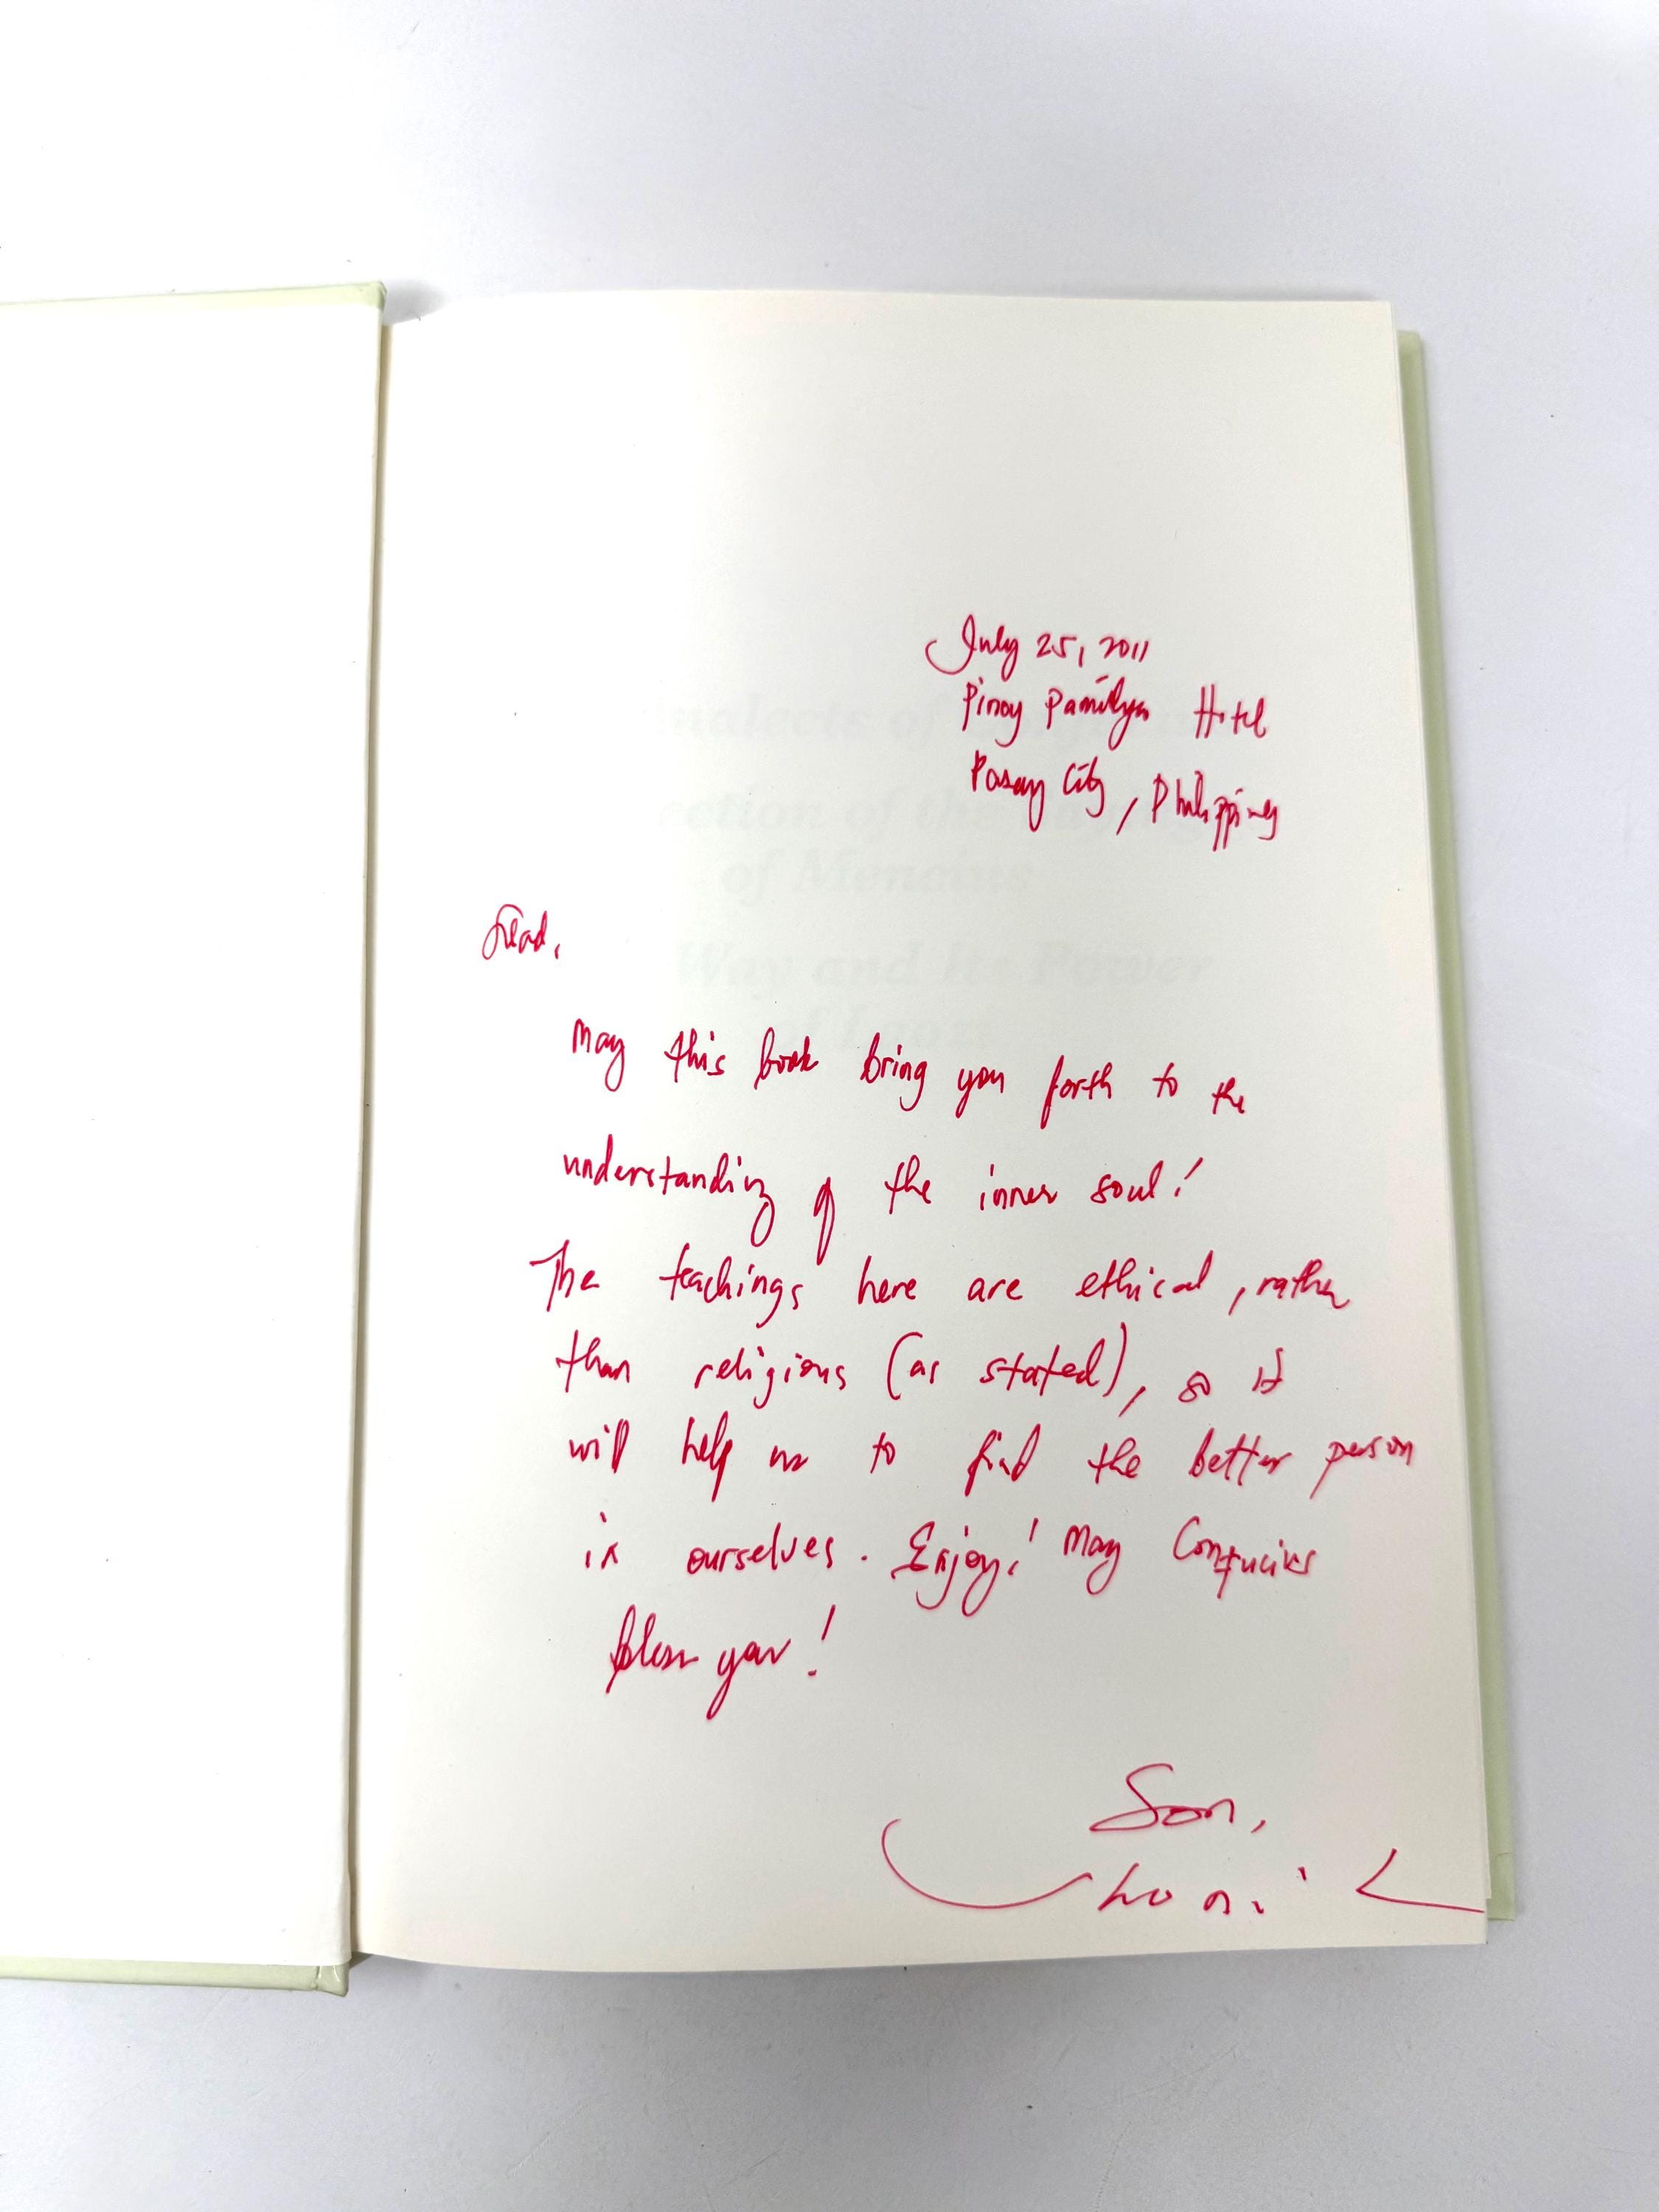 July 25, 2011
Pinoy Pamilya Hotel
Pasay City, Philippines
May this book bring you forth to the
understanding of the inner soul!
The teachings here are ethical, rather
than religious (as stated), so it
will help us to find the better person
in ourselves. Enjoy! May Confucius
bless you!
Son,
nalects of
ection of the
of Mencius
Way and Its Power
of Laozi